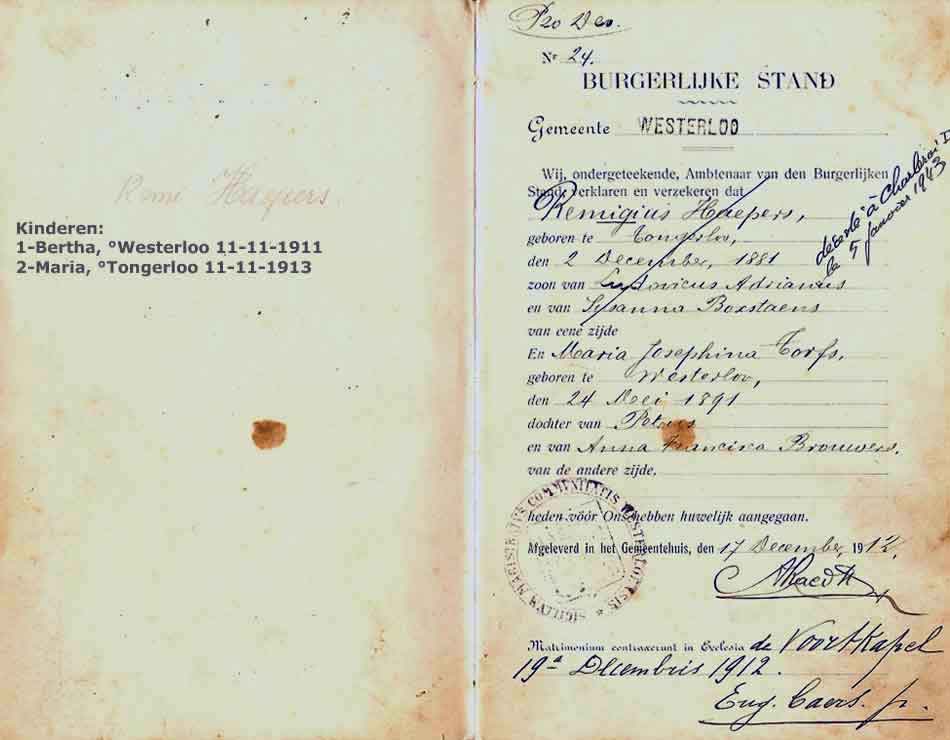 Remi Haepers.
Kinderen:
1-Bertha, °Westerloo 11-11-1911
2-Maria, °Tongerloo 11-11-1913
Pro Deo.
Nr 24.
BURGERLIJKE STAND
Gemeente WESTERLOO
Wij, ondergeteekende, Ambtenaar van den Burgerlijken
Stand, verklaren en verzekeren dat
Remigius Haepers,
geboren te Tongerloo,
den 2 December, 1881
zoon van Ludovicus Adrianus
en van Susanna Boxstaens
van eene zijde
En Maria Josephina Torfs,
geboren te Westerloo,
den 24 Mei 1891
dochter van Petrus
en van Anna Francisca Brouwers,
van de andere zijde,
heden vóór Ons hebben huwelijk aangegaan.
Afgeleverd in het Gemeentehuis, den 17 December, 1912,
Matrimonium contraxerunt in Ecclesia de Voortkapel
19a Decembris 1912.
Eug. Caers. pr.
décédé à Charleroi
le 5 Janvier 1943
SIGILLVM MAGISTRATVS COMMVNITATIS WESTERLOENSIS